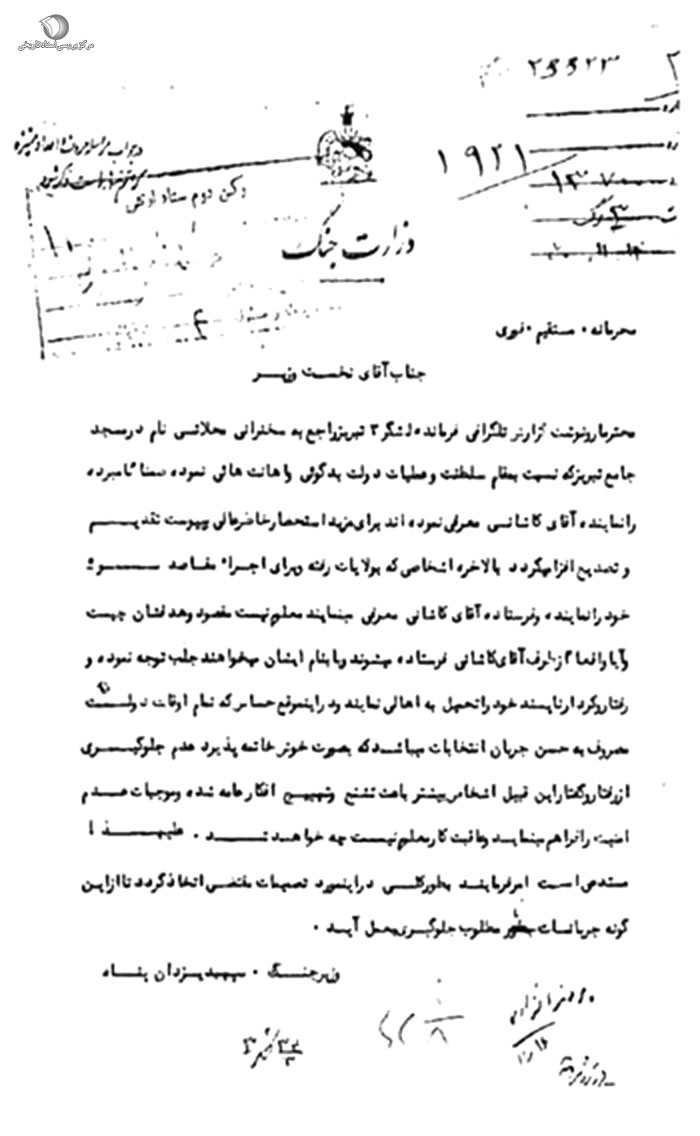 مرکز بررسی اسناد تاریخی
۲
۲۹۹۲۳
۱۹۲۱
۱۳۷۰
در جواب
رکن دوم ستاد ارتش
وزارت جنگ
محرمانه۰ مستقیم ۰ فوری
جناب آقای نخست وزیر
محترما رونوشت گزارش تلگرافی فرمانده لشگر ۳ تبریز راجع به سخنرانی محلاتی نام در مسجد
جامع تبریز که نسبت بمقام سلطنت و عملیات دولت بدگوئی و اهانت هائی نموده ضمنا نامبرده
را نماینده آقای کاشانی معرفی نموده اند برای مزید استحضار خاطر عالی بپیوست تقدیم
و تصدیع افزا میگردد بالاخره اشخاصی که بولایات رفته و برای اجراء مقاصد سوء
خود را نماینده و فرستاده آقای کاشانی معرفی مینمایند معلم نیست مقصود و هدفشان چیست
و آیا واقعا از طرف آقای کاشانی فرستاده میشوند و یا بنام ایشان میخواهند جلب توجه نموده و
رفتار و کردار ناپسند خود را تحمیل به اهالی نمایند و در اینموقع حساس که تمام اوقات دولت
مصروف به حسن جریان انتخابات میباشد که بصورت خوش خاتمه پذیرد عدم جلوگیری
از رفتار و گفتار این قبیل اشخاص بیشتر باعث تشنج و تهییج افکار عامه شده و موجبات عدم
امنیت را فراهم مینماید و عاقبت کار معلم نیست چه خواهد شد ۰ علیهذا
مستدعی است امر فرمایند بطور کلی در اینمورد تصمیمات مقتضی اتخاذ گردد تا از این
گونه جریانات بطور مطلوب جلوگیری بعمل آید ۰
وزیر جنگ ۰ سپهبد یزدان پناه